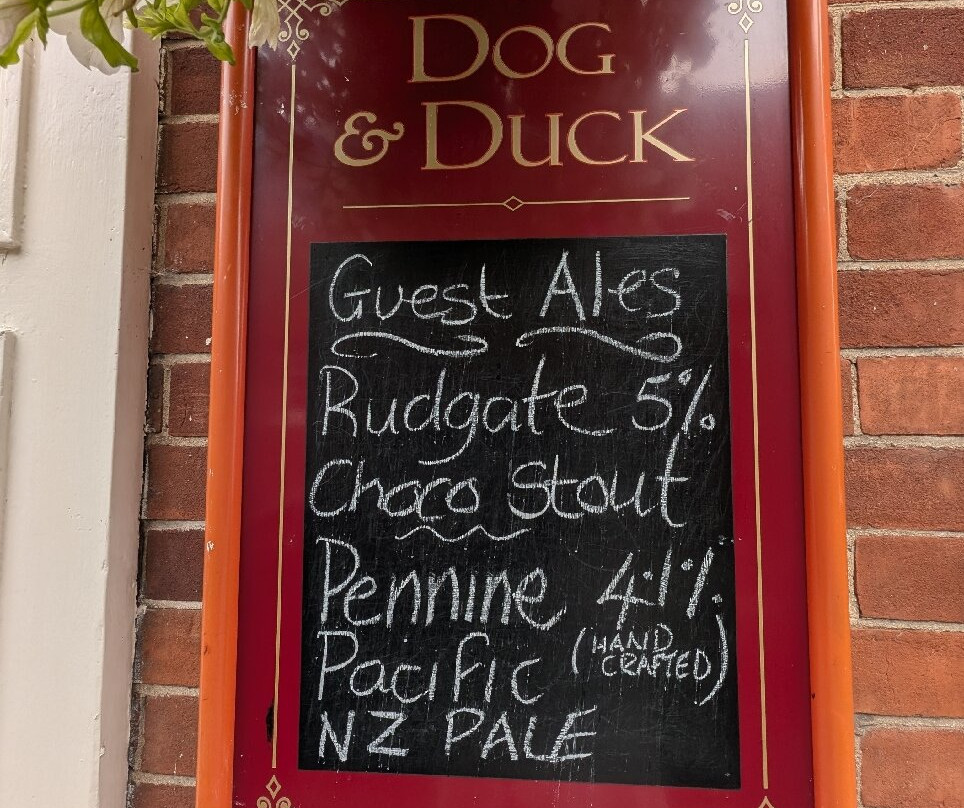 Dog
& Duck
Guest Ales
Rudgate 5%
Choco Stout
Pennine 4.1%
Pacific (HAND CRAFTED)
NZ PALE